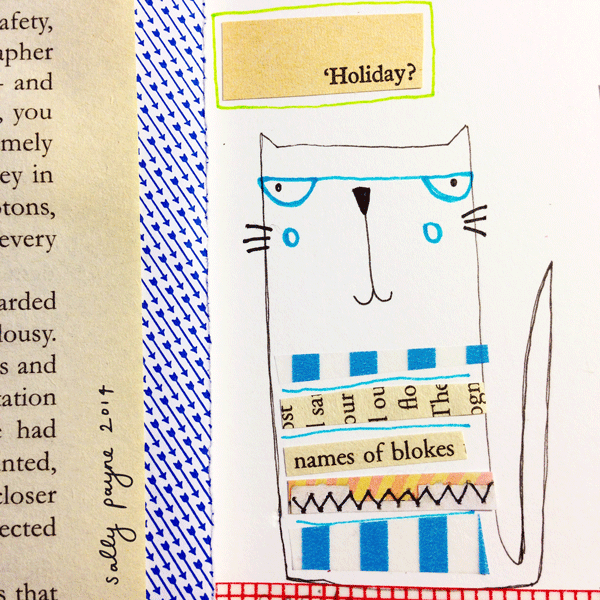 afety,
apher
- and
, you
mely
ey in
otons,
every
arded
lousy.
s and
tation
e had
nted,
closer
ected
s that
sally payne 2014
'Holiday?
ost
I sau
our
I ou
flo
The
ogn
names of blokes